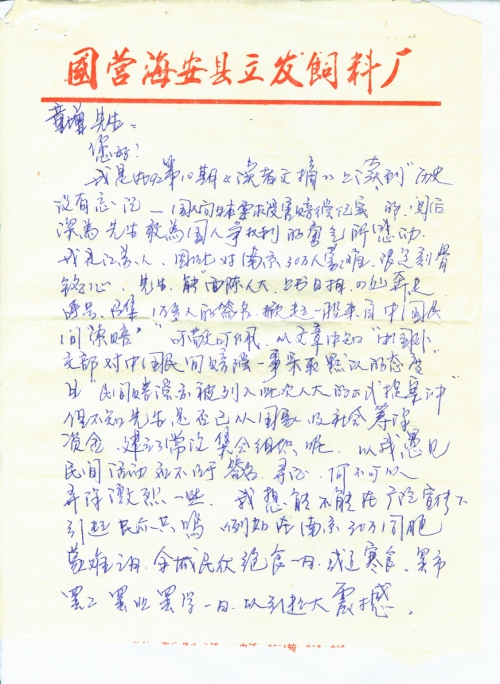 國营海安县立发飼料厂
童增先生:
您好!
我是从92第10期《读者文摘》上读到"历史
没有忘记——国人向日本要求受害赔偿纪实 的,阅后
深为先生敢为国人争权利的勇气所感动.
我是江苏人,因此对南京30万人蒙难.
铭心.先生,
呼吁,召集 1万多人的签名.掀起一股来自中国民
间"索赔" 可敬可佩.从文章中知"中国外
交部对中国民间赔偿一事采取默认的态度"
且 民间赔偿 被列入此次人大的正式提案中"
但不知先生是否已从国家及社会筹
资金.建立常设集会组织呢. 以我愚见
民间活动 不止于签名.寻证.何不可以
激烈一些. 我想能不能在广泛宣传下
引起民众共鸣 例如在南京30万同胞
蒙难之日.全城民众绝食一日.或过寒食.罢市
罢工罢业罢学一日.以引起大震撼。